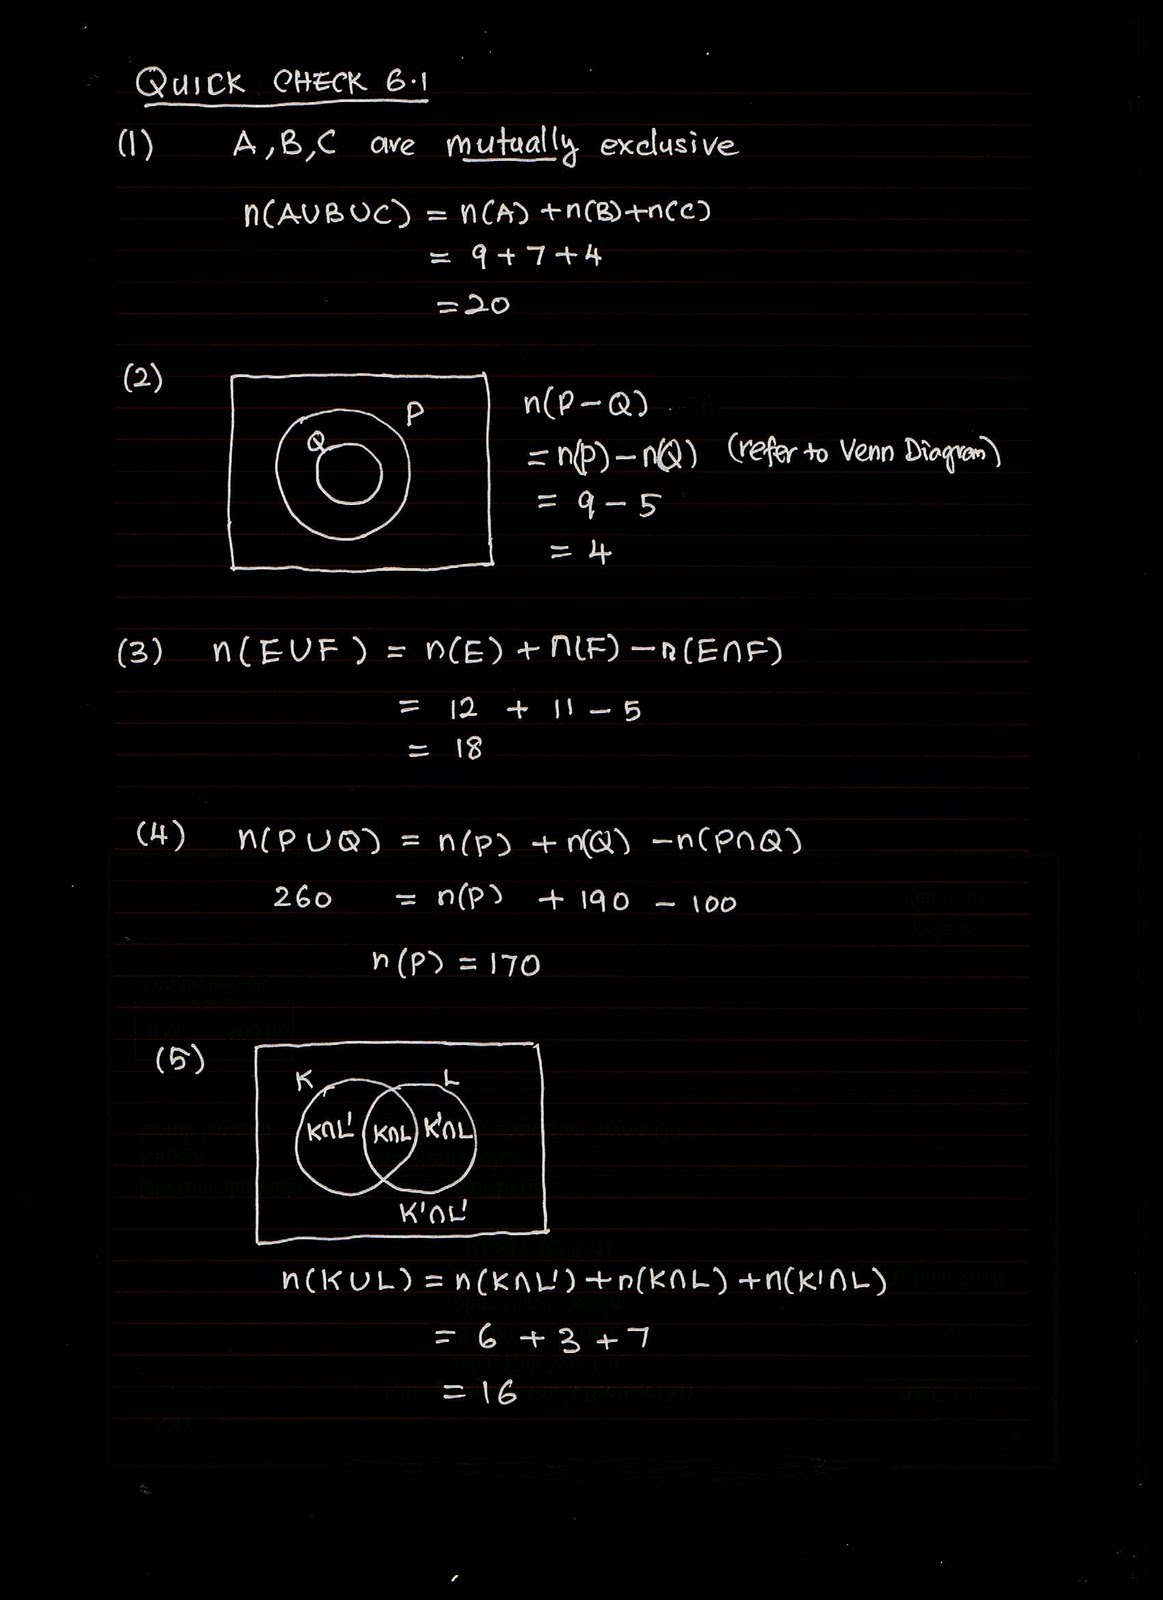 QUICK CHECK 6.1
(1) A,B,C are mutually exclusive
n(A∪B∪C) = n(A)+n(B)+n(C)
= 9+7+4
=20
(2)
P
Q
n(P-Q)
=n(P)-n(Q) (refer to Venn Diagram)
= 9-5
= 4
(3) n(E∪F) = n(E)+n(F)-n(E∩F)
= 12 + 11 - 5
= 18
(4) n(P∪Q) = n(P) +n(Q) -n(P∩Q)
260 = n(P) + 190 - 100
n(P) = 170
(5)
K L
K∩L' K∩L K'∩L
K'∩L'
n(K∪L) = n(K∩L')+n(K∩L)+n(K'∩L)
= 6 + 3 + 7
= 16